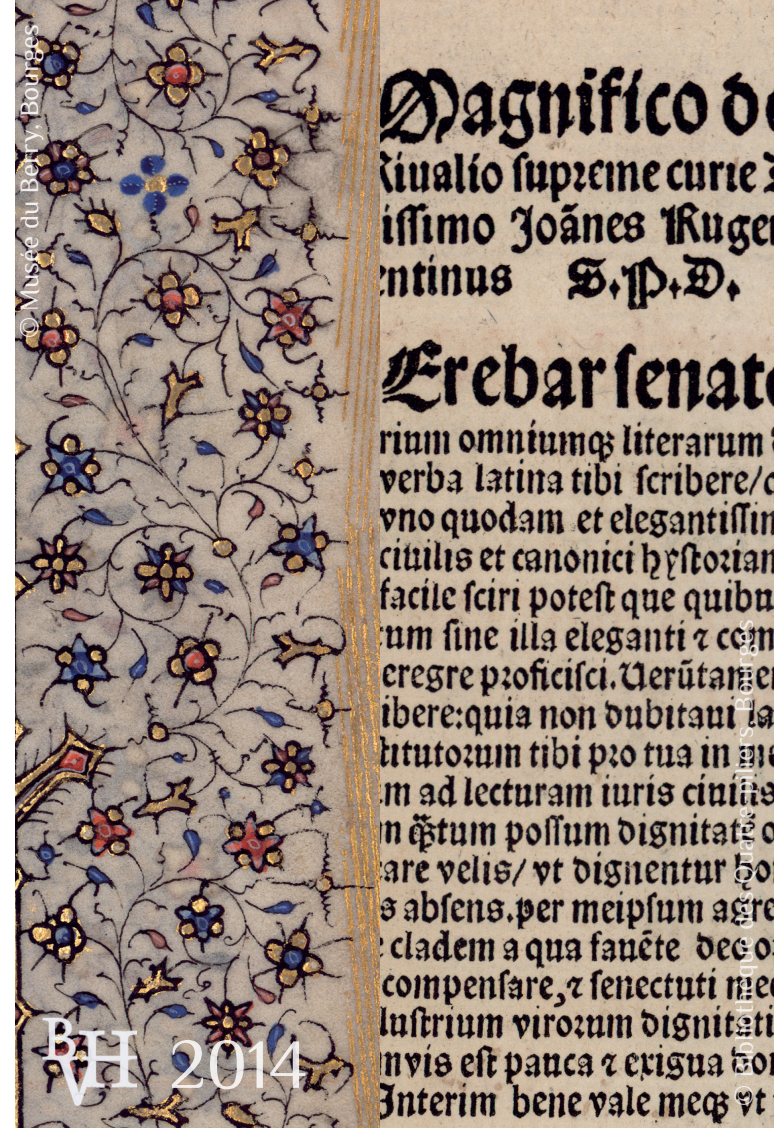 © Musée du Berry, Bourges
Magnifico do
Riualio ſupreme curie
iſſimo Joānes Ruge
entinus S.P.D.
Erebar ſenato
rium omniumqꝫ literarum
verba latina tibi ſcribere/
vno quodam et elegantiſſim
ciuilis et canonici hyſtoriam
facile ſciri poteſt que quibu
rum ſine illa eleganti ⁊ com
eregre proficiſci. Uerūtamen
ibere: quia non dubitaui la
titutorum tibi pro tua in me
m ad lecturam iuris ciuilis
poſſum dignitatis
are velis/ vt dignentur hon
s abſens. per meipſum agre
cladem a qua fauēte deo
compenſare, ⁊ ſenectuti mee
luſtrium virorum dignitati
nvis eſt pauca ⁊ exigua don
Interim bene vale meqꝫ vt
© Bibliothèque des Quatre-piliers, Bourges
BVH 2014